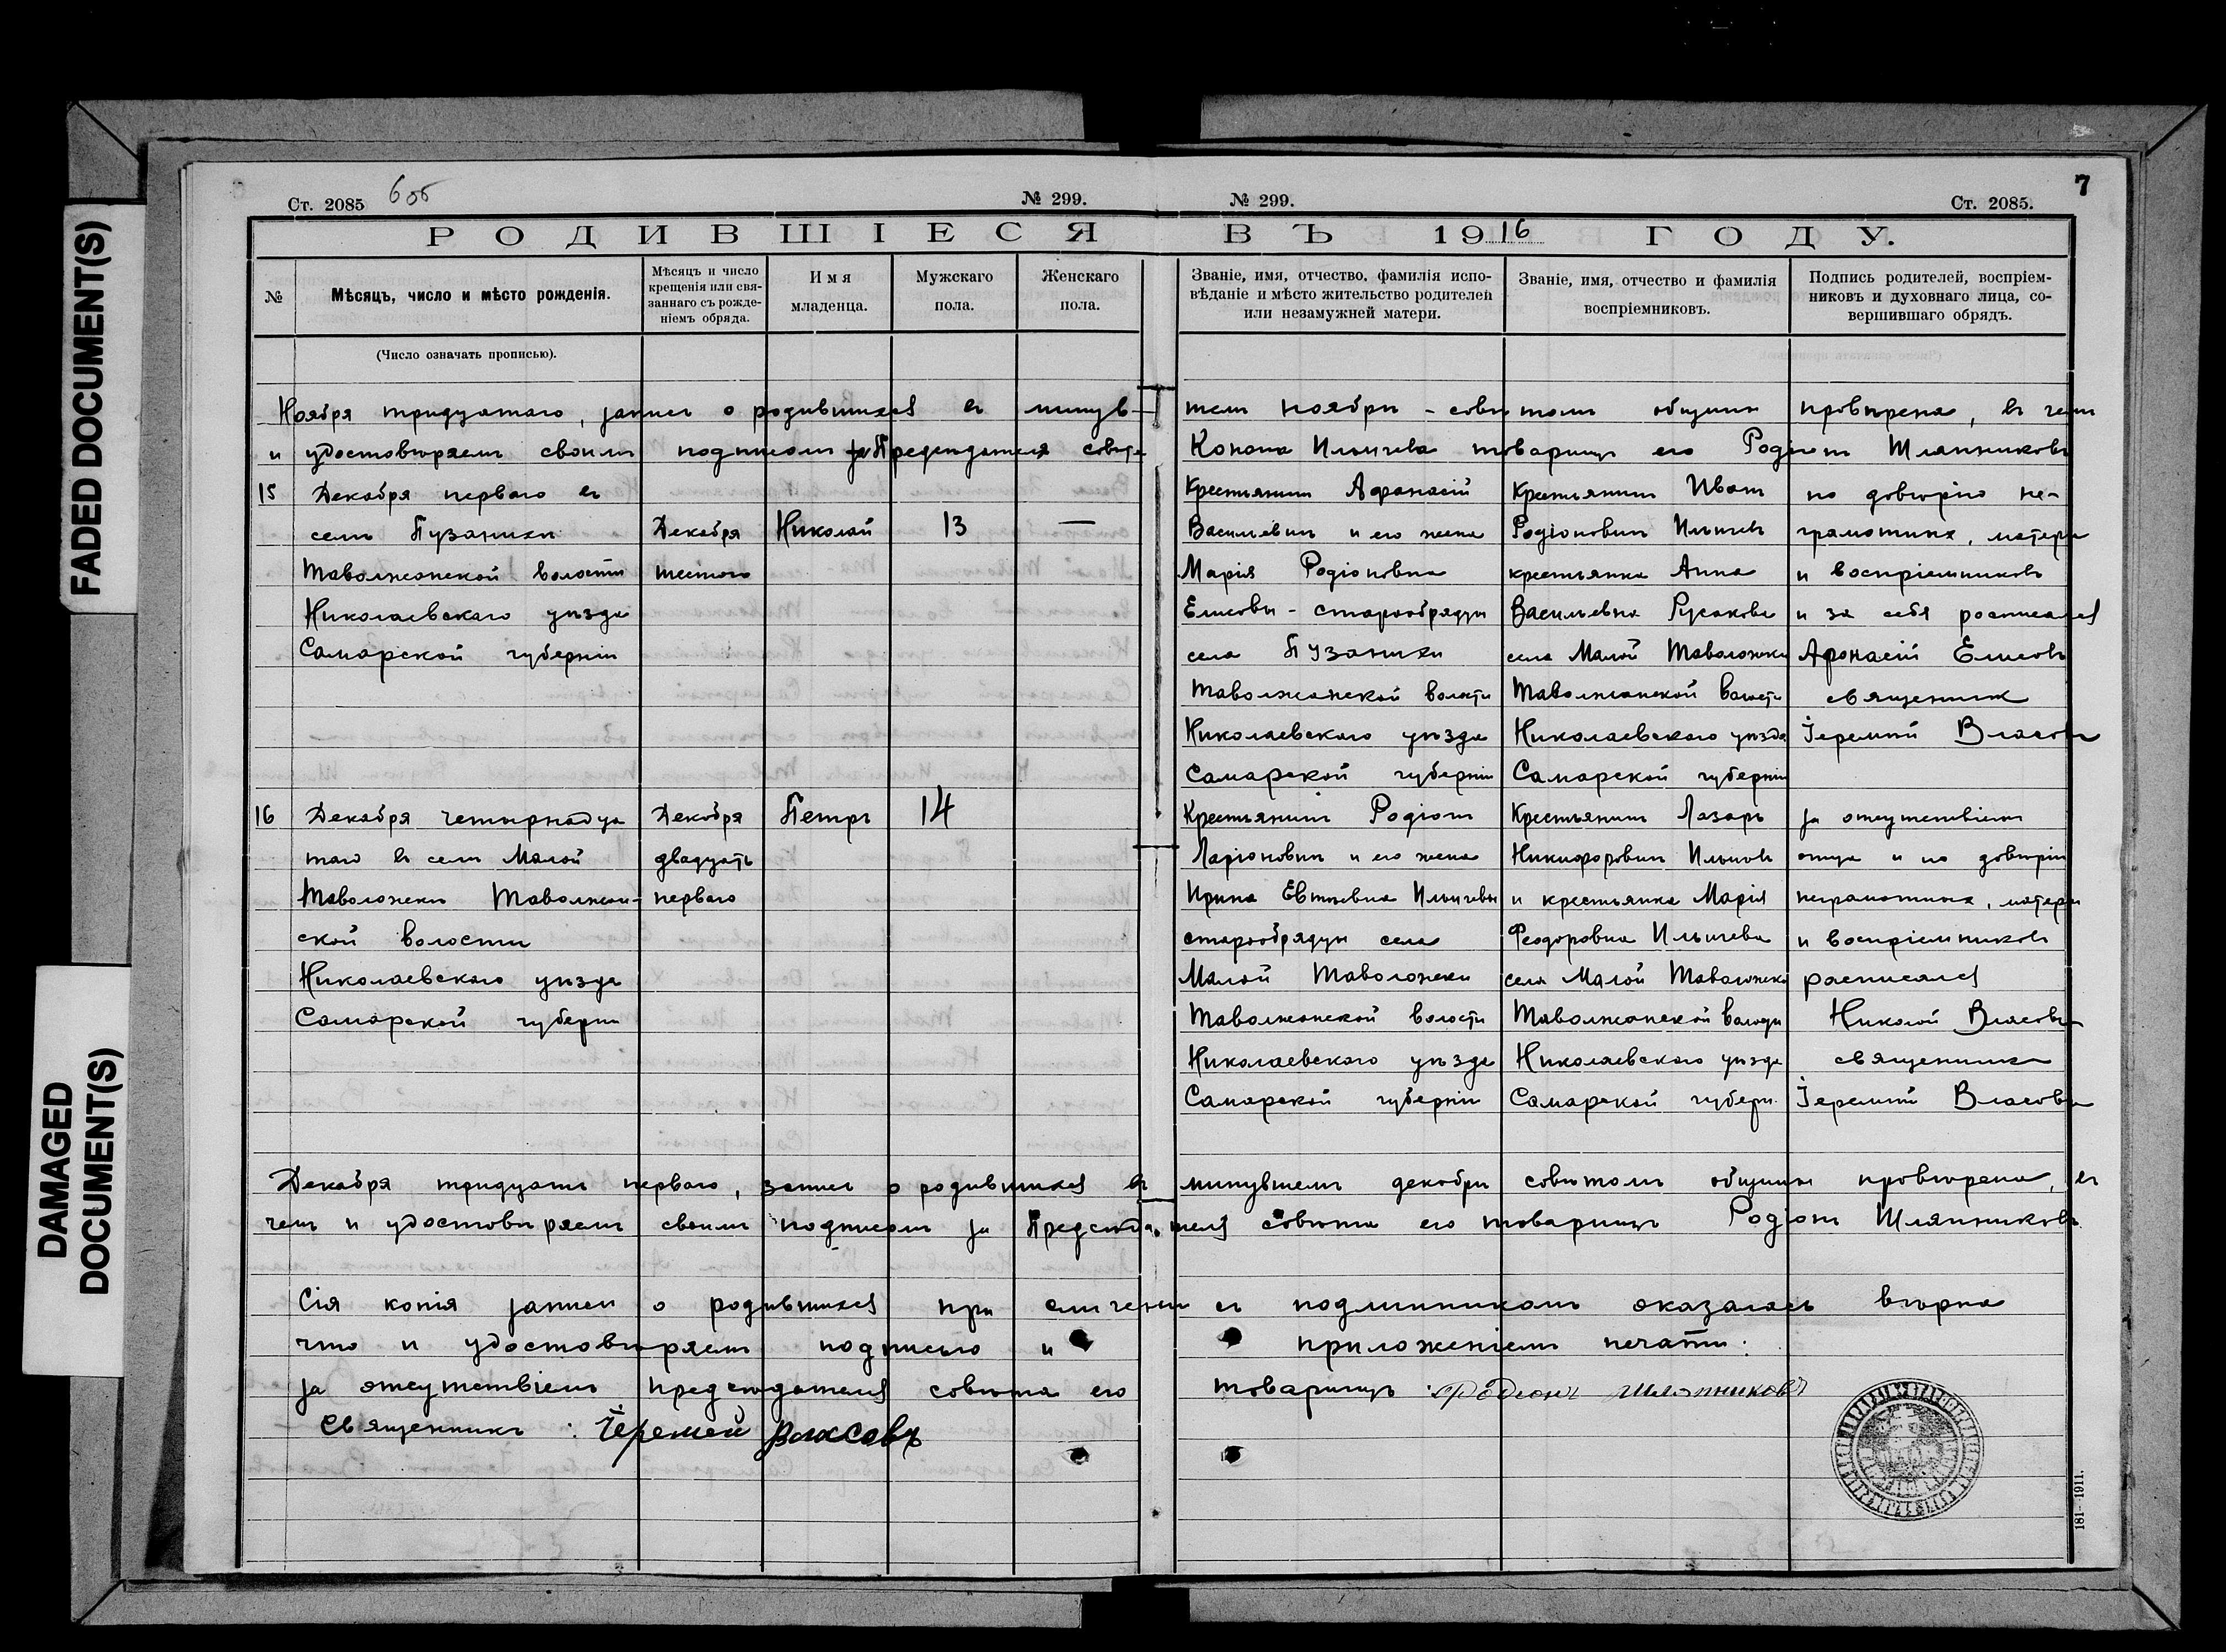 FADED DOCUMENT(S)
DAMAGED DOCUMENT(S)
7
Ст. 2085 6об № 299.
№ 299. Ст. 2085.
РОДИВШІЕСЯ ВЪ 1916 ГОДУ.
№
Мѣсяцъ, число и мѣсто рожденія.
(Число означать прописью).
Мѣсяцъ и число
крещенія или свя-
заннаго съ рожде-
ніемъ обряда.
Имя
младенца.
Мужскаго
пола.
Женскаго
пола.
Званіе, имя, отчество, фамилія испо-
вѣданіе и мѣсто жительство родителей
или незамужней матери.
Званіе, имя, отчество и фамилія
воспріемниковъ.
Подпись родителей, воспріем-
никовъ и духовнаго лица, со-
вершившаго обрядъ.
Ноября тридцатаго, запись о родившихся въ минув-
шемъ ноябрѣ совѣтомъ общины провѣрена, въ чемъ
и удостовѣряемъ своимъ подписомъ за Предсѣдателя совѣта
Конона Ильичева товарищъ его Родіонъ Шляпниковъ
15
Декабря перваго въ
селѣ Пузанихи
Таволжанской волости
Николаевскаго уѣзда
Самарской губерніи
Декабря
шестого
Николай
13
—
Крестьянинъ Афанасій
Васильевичъ и его жена
Марія Родіоновна
Елисовы - старообрядцы
села Пузанихи
Таволжанской волости
Николаевскаго уѣзда
Самарской губерніи
Крестьянинъ Иванъ
Родіоновичъ Ильичевъ
крестьянка Анна
Васильевна Русакова
села Малой Таволожки
Таволжанской волости
Николаевскаго уѣзда
Самарской губерніи
по довѣрію не-
грамотныхъ, матери
и воспріемниковъ
и за себя росписался
Афонасій Елисовъ
священник
Іеремій Власовъ
16
Декабря четырнадца
таго въ селѣ Малой
Таволожки Таволжан-
ской волости
Николаевскаго уѣзда
Самарской губерніи
Декабря
двадцать
перваго
Петръ
14
Крестьянинъ Родіонъ
Ларіоновичъ и его жена
Ирина Евтѣевна Ильичевы
старообрядцы села
Малой Таволожки
Таволжанской волости
Николаевскаго уѣзда
Самарской губерніи
Крестьянинъ Лазарь
Никифоровичъ Ильичевъ
и крестьянка Марія
Феодоровна Ильичева
села Малой Таволожки
Таволжанской волости
Николаевскаго уѣзда
Самарской губерн.
за отсутствіемъ
отца и по довѣрію
неграмотныхъ, матери
и воспріемниковъ
расписался
Николай Власовъ
священникъ
Іеремій Власовъ
Декабря тридцать перваго, запись о родившихся въ минувшемъ декабрѣ совѣтомъ общины провѣрена, въ
чемъ и удостовѣряемъ своимъ подписомъ за Предсѣдателя совѣта его товарищъ Родіонъ Шляпниковъ.
Сія копія записи о родившихся при сличеніи съ подлинникомъ оказалась вѣрна
что и удостовѣряемъ подписью и приложеніемъ печати:
за отсутствіемъ предсѣдателя совѣта его товарищъ: Родионъ Шляпниковъ
Священникъ: Іеремей Власовъ
181—1911.